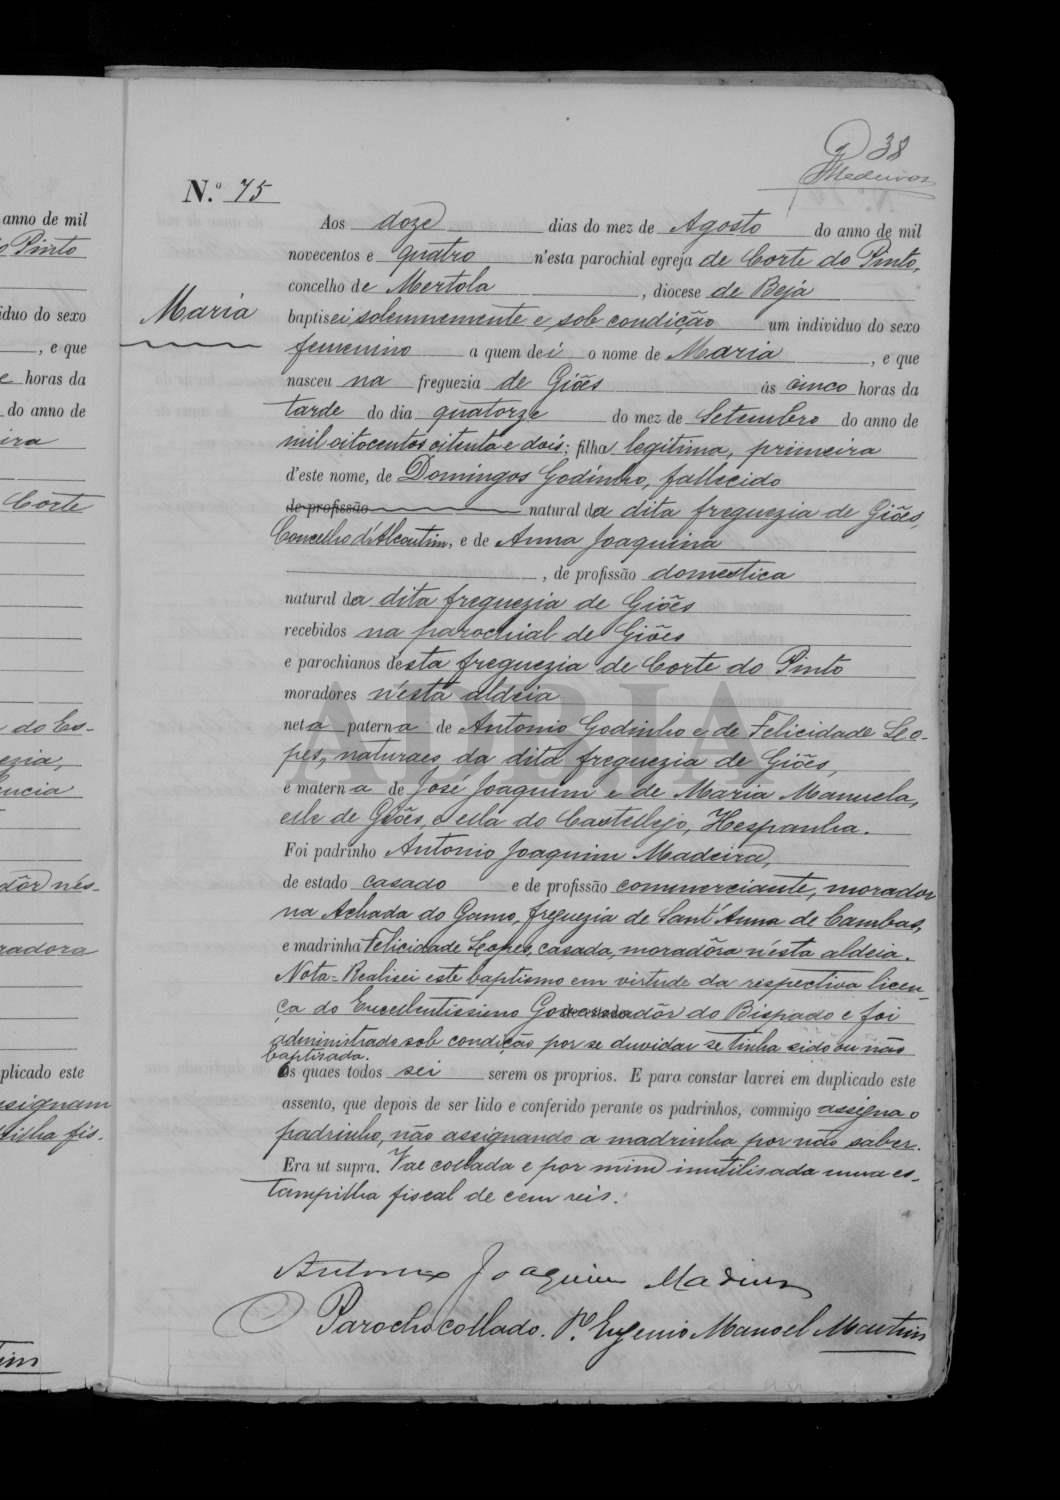 38
Medeiros
N.º 75
Aos doze dias do mez de Agosto do anno de mil
novecentos e quatro n'esta parochial egreja de Corte do Pinto,
concelho de Mertola, diocese de Beja
Maria
baptisei solemnemente e sob condição um individuo do sexo
femenino a quem dei o nome de Maria, e que
nasceu na freguezia de Giões ás cinco horas da
tarde do dia quatorze do mez de Setembro do anno de
mil oitocentos oitenta e dois: filha legitima, primeira
d'este nome, de Domingos Godinho, fallecido
de profissão natural da dita freguezia de Giões,
Concelho d'Alcoutim, e de Anna Joaquina
, de profissão domestica
natural da dita freguezia de Giões
recebidos na parochial de Giões
e parochianos desta freguezia de Corte do Pinto
moradores n'esta aldeia
neta paterna de Antonio Godinho e de Felicidade Lo-
pes, naturaes da dita freguezia de Giões,
e materna de José Joaquim e de Maria Manuela,
elle de Giões, e ella do Castellejo, Hespanha.
Foi padrinho Antonio Joaquim Madeira,
de estado casado e de profissão commerciante, morador
na Achada do Gamo, freguezia de Sant'Anna de Cambas,
e madrinha Felicidade Lopes, casada, moradôra n'esta aldeia.
Nota = Realisei este baptismo em virtude da respectiva licen-
ça do Excellentissimo Governadôr do Bispado e foi
administrado sob condição por se duvidar se tinha sido ou não
baptisada.
Os quaes todos sei serem os proprios. E para constar lavrei em duplicado este
assento, que depois de ser lido e conferido perante os padrinhos, commigo assigna o
padrinho, não assignando a madrinha por não saber.
Era ut supra. Vae collada e por mim inutilisada uma es-
tampilha fiscal de cem reis.
Antonio Joaquim Madeira
O Parocho collado. P.e Eugenio Manoel Martins
anno de mil
o Pinto
iduo do sexo
, e que
e horas da
do anno de
ira
Corte
do Es-
ezia,
encia
dôr nes-
radora
plicado este
ssignam
pilha fis-
ADBJA